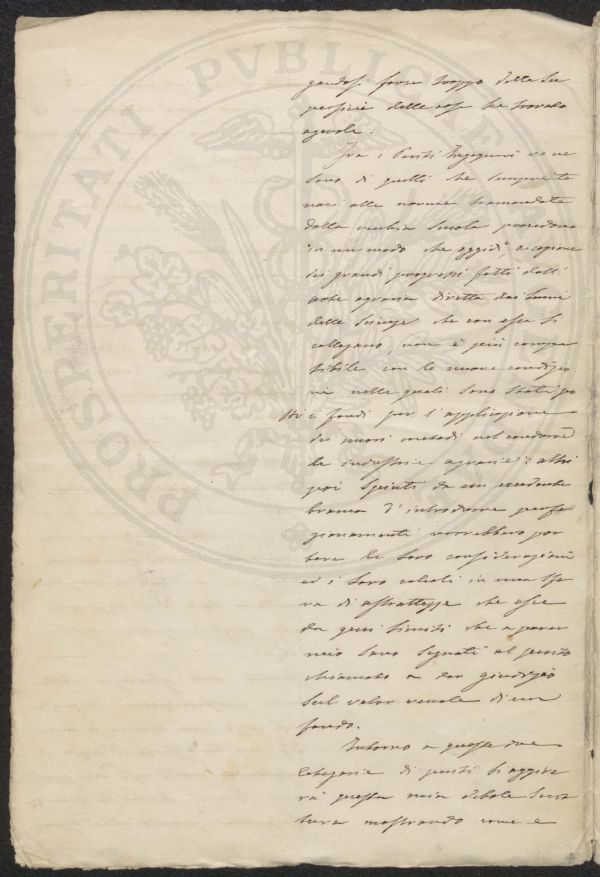 PROSPERITATI PVBLICAE
gandosi forse troppo della su
perficie delle cose ha trovato
agevole.
Fra i Periti Ingegneri ve ne
sono di quelli che
alle norme tramandate
dalla vecchia Scuola procedono
in un modo che oggidì, a cagione
dei grandi progressi fatti dall'
arte agraria diretta dai lumi
delle Scienze che con essa si
collegano, non è più compa
tibile con le nuove condizio
ni nelle quali sono stati po
sti i fondi per l'applicazione
dei nuovi metodi nel condurre
le industrie agrarie: altri
poi spinti da un
brama d'introdurre perfe
zionamenti vorrebbero por
tare le loro considerazioni
ed i loro calcoli in una sfe
ra di astrattezze che esce
da quei limiti che a parer
mio sono segnati al perito
chiamato a dar giudizio
sul valor venale di un
fondo.
Intorno a queste due
categorie di periti si aggire
rà questa mia debole Scrit
tura mostrando come e